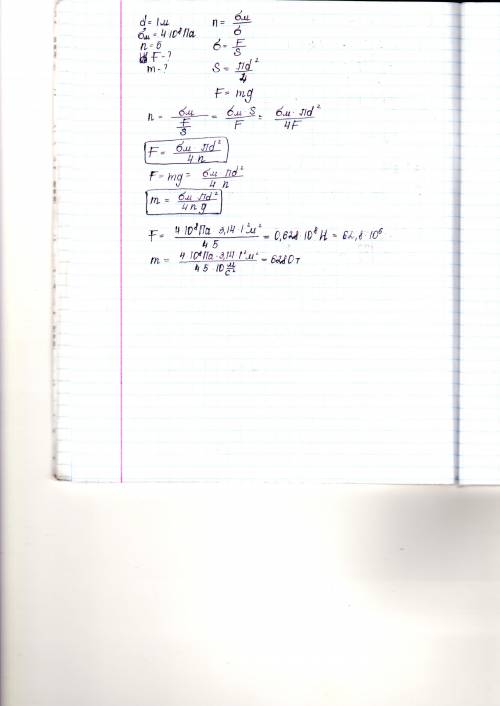 d = 1м
σм = 4·10⁸ Па
n = 5
F - ?
m - ?
n = σм / σ
σ = F / S
S = πd² / 4
F = mg
n = σм / (F / S) = σм · S / F = σм · πd² / 4F
F = σм · πd² / 4n
F = mg = σм πd² / 4n
m = σм πd² / 4ng
F = 4·10⁸Па · 3,14·1²м² / 4·5 = 0,628·10⁸ Н = 62,8·10⁶
m = 4·10⁸Па·3,14·1²м² / 4·5·10 м/с² = 6280т